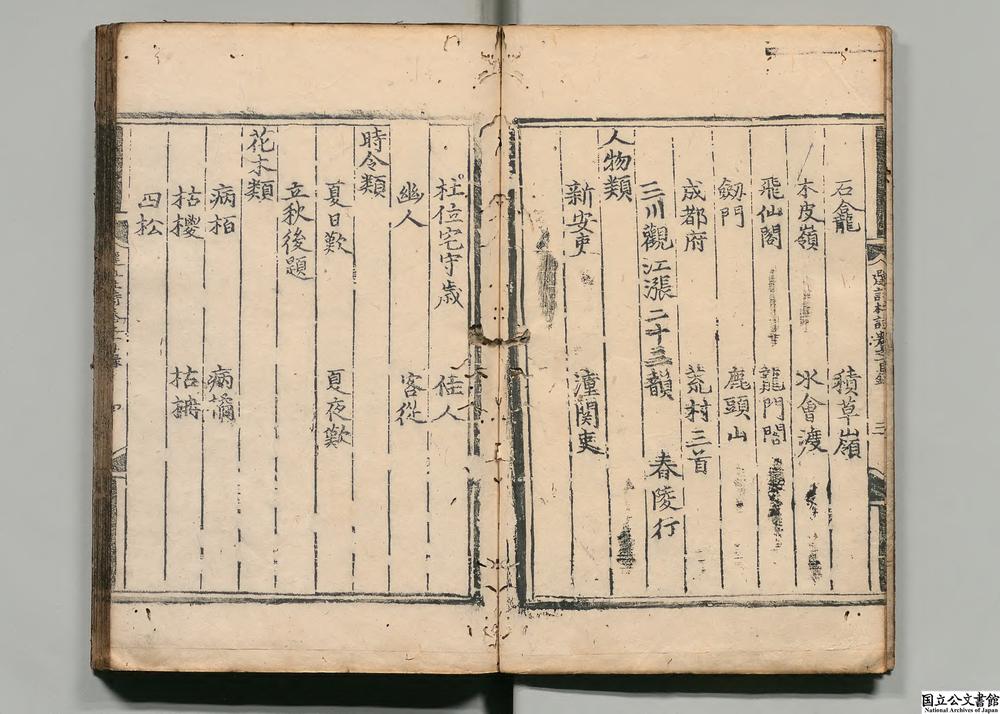 石龕 積草嶺
木皮嶺 水會渡
飛仙閣 龍門閣
劔門 鹿頭山
成都府 荒村三首
三川觀江漲二十三韻 春陵行
人物類
新安吏 潼関吏
杜位宅守歳 佳人
幽人 客從
時令類
夏日歎 夏夜歎
立秋後題
花木類
病栢 病橘
枯椶 枯柟
四松
三
国立公文書館
National Archives of Japan